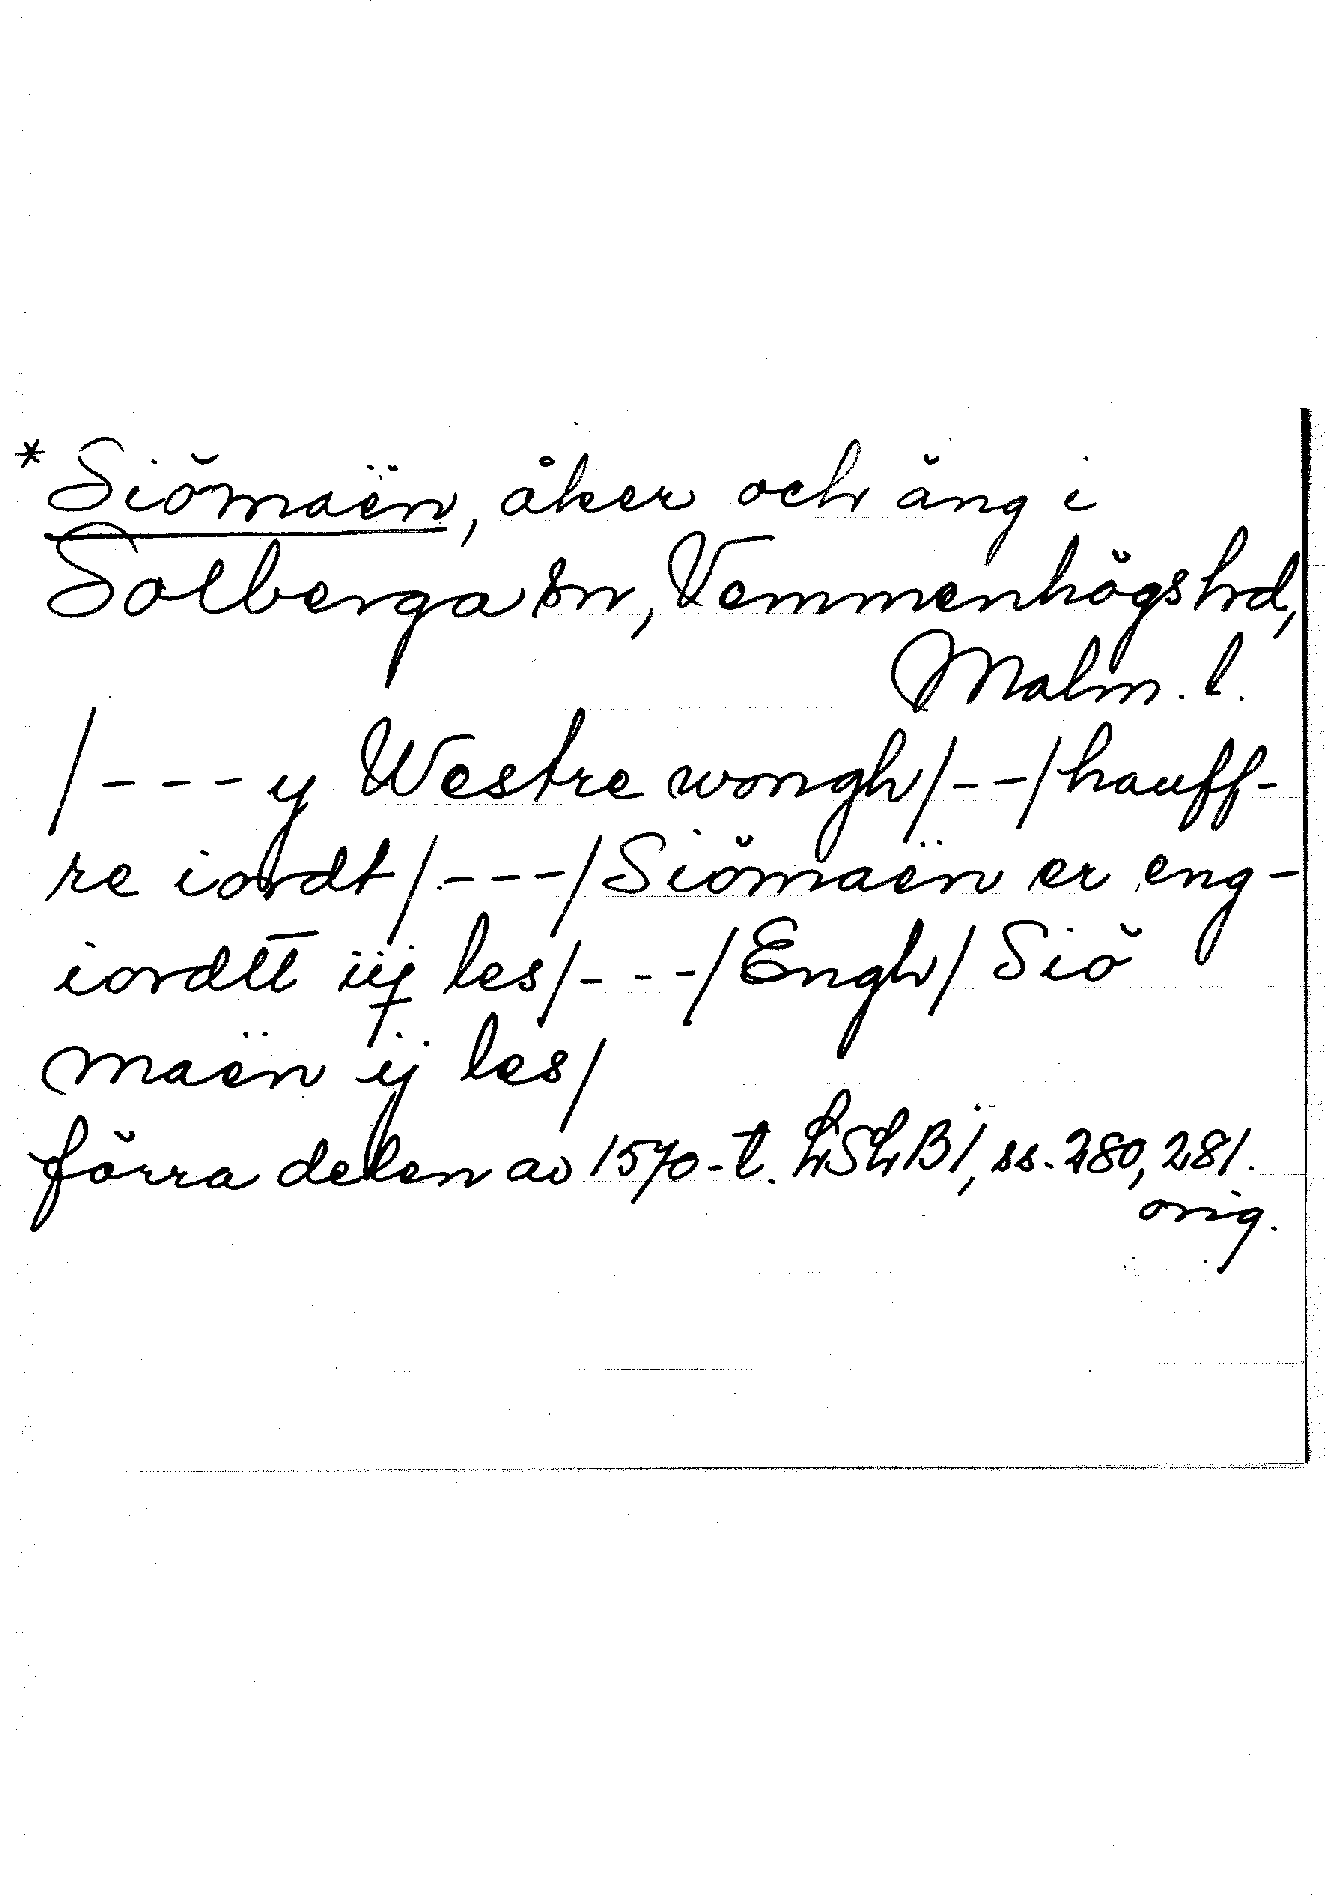 *Siömaën, åker och äng i
Solberga sn, Vemmenhögs hrd,
Malm. l.
/- - - y Westre wongh/- -/hauff-
re iordt/- - -/Siömaën er eng-
iordtt iij les/- - -/Engh/Siö
maën ij les/
förra delen av 1570-t. LSLB 1, ss. 280, 281.
orig.